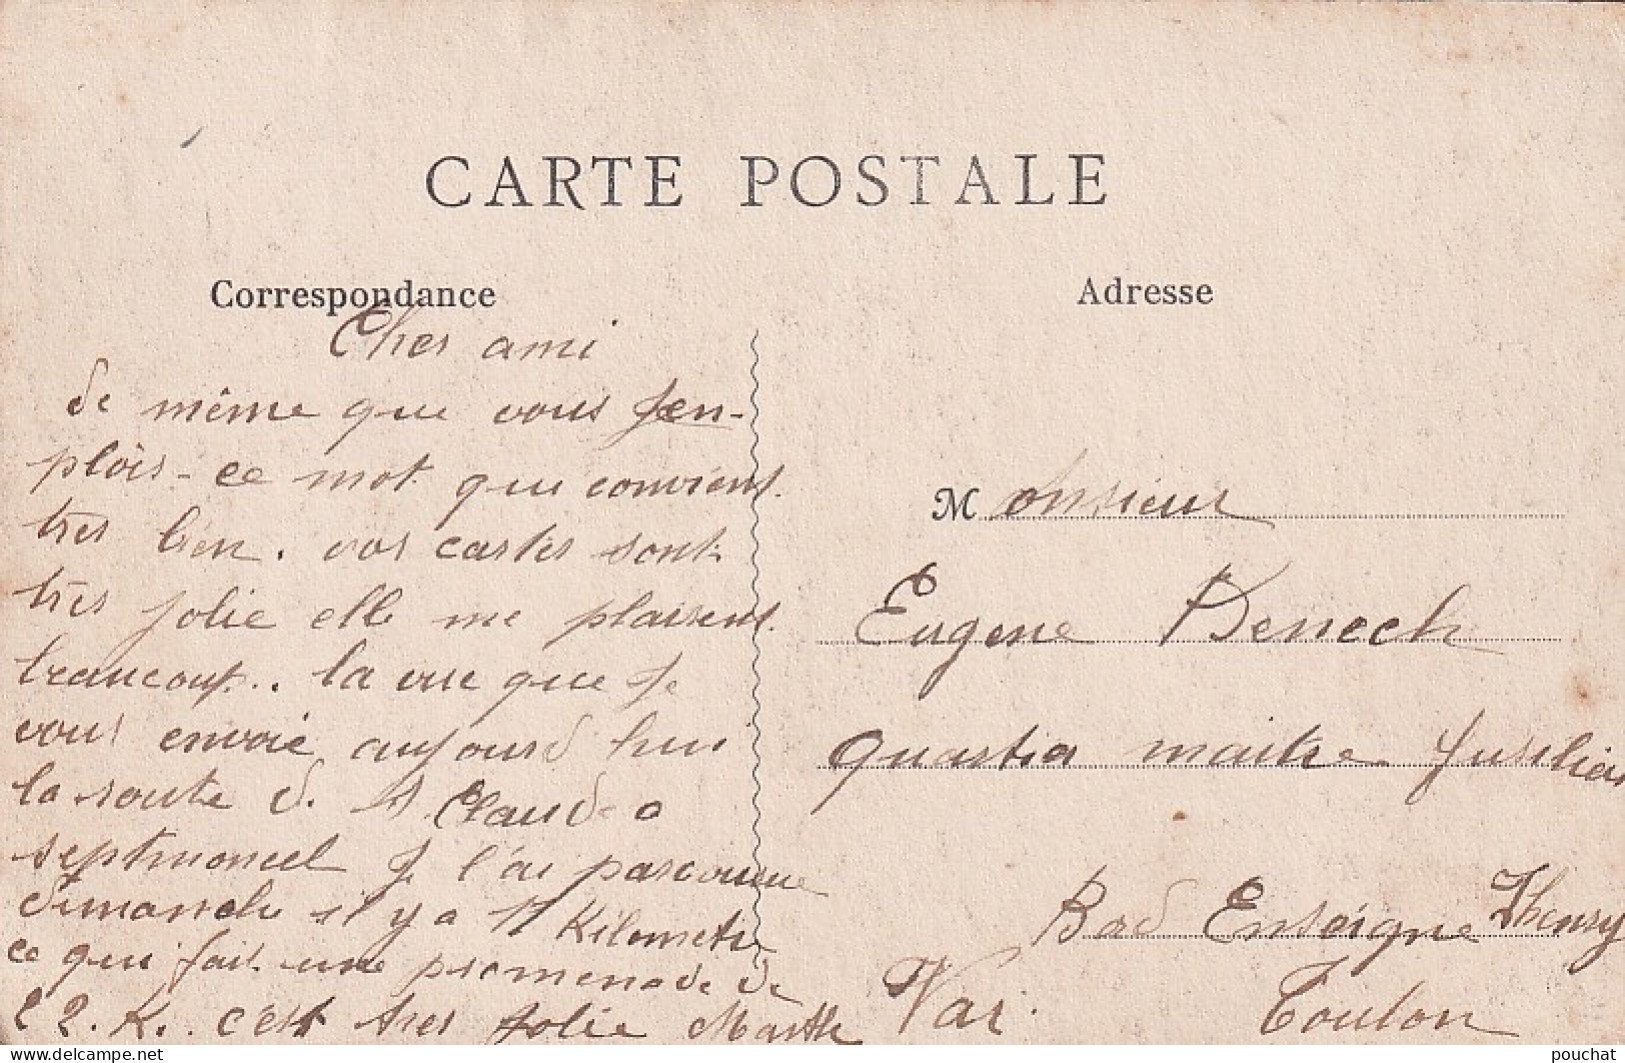 CARTE POSTALE
Correspondance
Cher ami
de même que vous J'en-
plois - ce mot que convient
tres bien. vos cartes sont
très jolie elle me plaisent
beaucoup.. la vue que je
vous envoie aujourd hui
la route de St Claude a
septmoncel je l'ai parcourue
dimanche il y a 11 Kilometre
ce qui fait une promenade de
22. K. c'est tres jolie Marthe
Adresse
Monsieur
Eugene Denech
quartier maitre fusilier
Bad Enseigne Thenry
Var. Toulon
pouchat